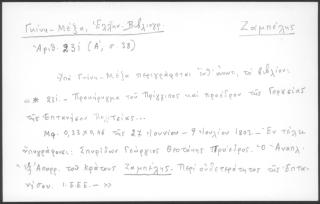 Γκίνη - Μέξα, Ἑλλην. Βιβλιογρ. Ζαμπέλης
Ἀριθ. 231 (Α', σ. 38)
Ὑπὸ Γκίνη - Μέξα περιγράφεται τὸ βιβλίον:
«* 231. - Προκήρυγμα τοῦ Πρίγγιπος καὶ προέδρου τῆς Γερουσίας
τῆς Ἑπτανήσου Πολιτείας...
Μφ. 0,33 × 0,46 τῆς 27 Ἰουνίου - 9 Ἰουλίου 1803. - Ἐν τέλει
ὑπογράφουσι: Σπυρίδων Γεώργιος Θεοτόκης Πρόεδρος. Ὁ Ἀναπλ.
Ἀπορρ. τοῦ Κράτους Ζαμπέλης. Περὶ οὐδετερότητος τῆς Ἑπτα-
νήσου. Ι.Ε.Ε.Ε. - »